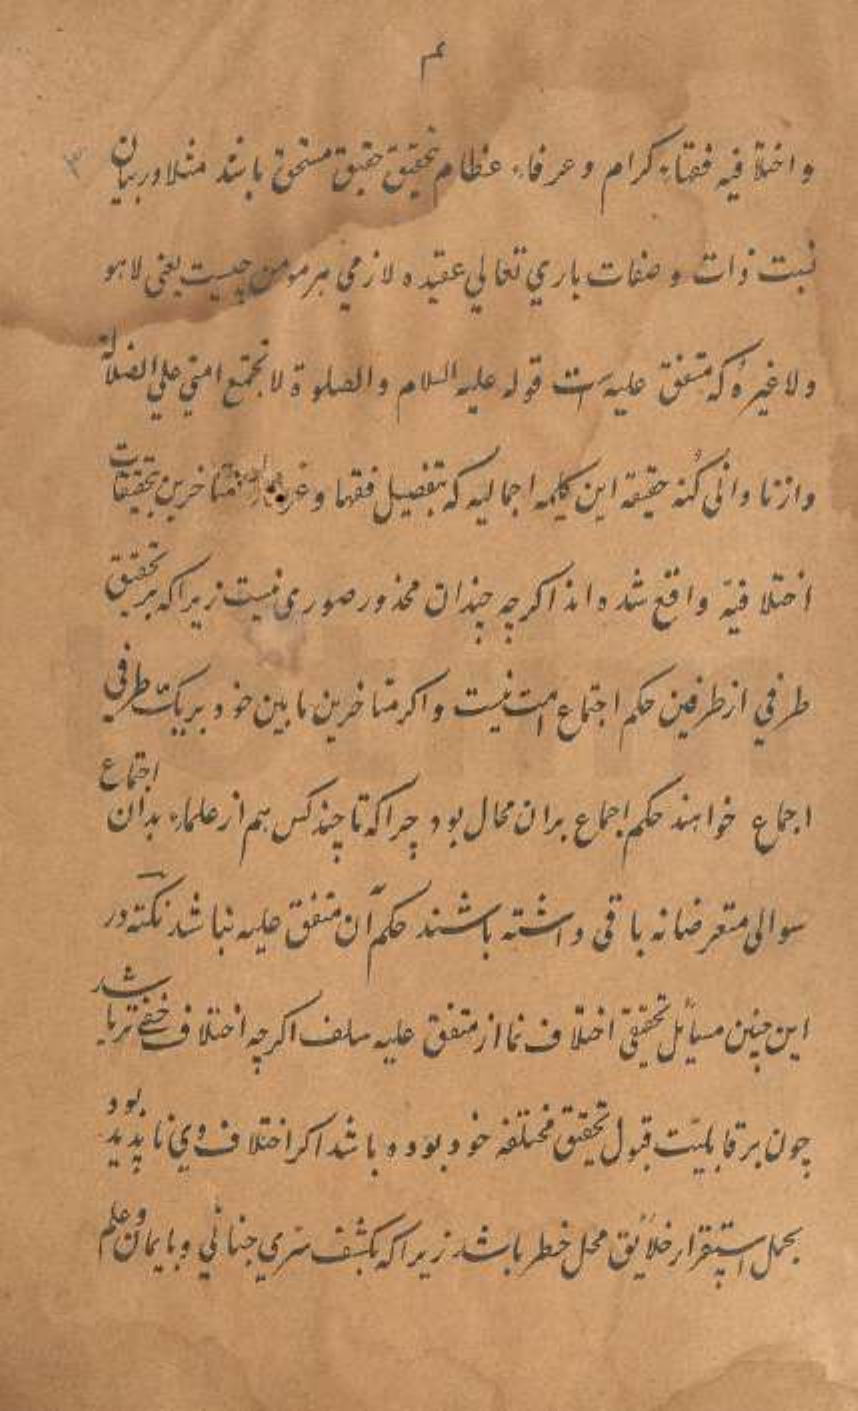 ۴
و اختلافیه فقهاء کرام و عرفاء عظام تحقیق حقیق مستحق باشد مثلا در بیان
۳
نسبت ذات و صفات باري تعالي عقیده لازمي هر مومن چیست یعنی لا هو
ولا غیره که متفق علیه است قوله علیه السلام والصلوة لا تجتمع امتي علي الضلالة
و از نادانی کنه حقیقة این کلیمه اجمالیه که بتفصیل فقها و متاخرین بتحقیقات
اختلافیة واقع شده اند اکرچه چندان محذور صوری نیست زیرا که بر تحقیق
طرفي از طرفین حکم اجتماع امت نیست و اکر متاخرین مابین خود بر یک طرفي
اجماع خواهند حکم اجماع بران محال بود چرا که تا چند کس هم از علماء بدان اجتماع
سوالی متعرضانه باقی داشته باشند حکم آن متفق علیه نباشد نکته در
این چنین مسائل تحقیقی اختلاف نما از متفق علیه سلف اکرچه اختلاف خفے تر باشد
چون بر قابلیت قبول تحقیق مختلفه خود بوده باشد اکر اختلاف وي ناپدید بود
بحمل استقرار خلایق محل خطر باشد زیرا که بکشف سري جناني و بایمان و علم